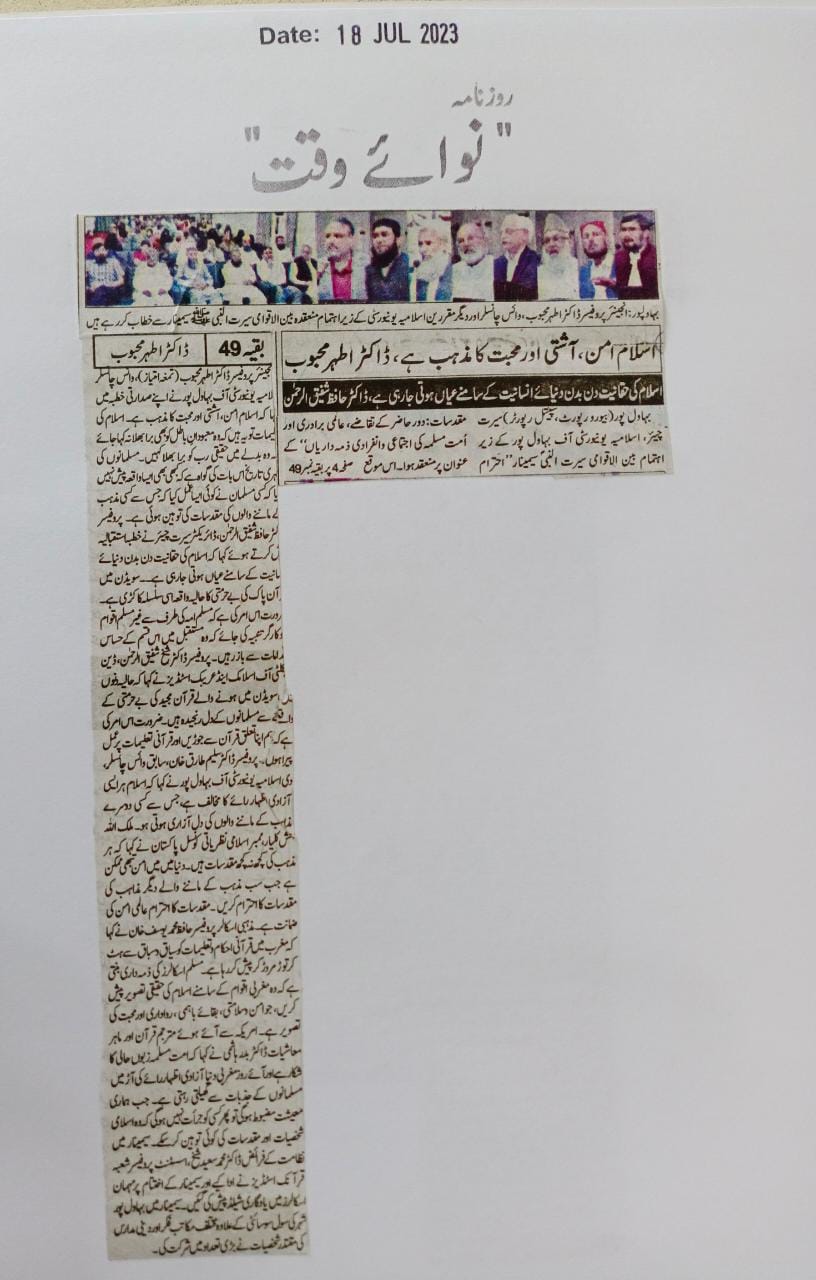 Date: 18 JUL 2023
روزنامہ
"نوائے وقت"
بہاولپور: انجینئر پروفیسر ڈاکٹر اطہر محبوب، وائس چانسلر اور دیگر مقررین اسلامیہ یونیورسٹی کے زیر اہتمام منعقدہ بین الاقوامی سیرت النبی ﷺ سیمینار سے خطاب کر رہے ہیں
اسلام امن، آشتی اور محبت کا مذہب ہے، ڈاکٹر اطہر محبوب
اسلام کی حقانیت دن بدن دنیائے انسانیت کے سامنے عیاں ہوتی جا رہی ہے، ڈاکٹر حافظ شفیق الرحمٰن
بہاول پور (بیورو رپورٹ، سپیشل رپورٹر) سیرت
چیئر، اسلامیہ یونیورسٹی آف بہاول پور کے زیر
اہتمام بین الاقوامی سیرت النبیؐ سیمینار "احترام
مقدسات: دور حاضر کے تقاضے، عالمی برادری اور
اُمت مسلمہ کی اجتماعی و انفرادی ذمہ داریاں" کے
عنوان پر منعقد ہوا۔ اس موقع صفحہ 4 پر بقیہ نمبر 49
بقیہ 49 ڈاکٹر اطہر محبوب
پروفیسر ڈاکٹر اطہر محبوب (تمغہ امتیاز)، وائس چانسلر
یونیورسٹی آف بہاول پور نے اپنے صدارتی خطبہ میں
کہ اسلام امن، آشتی اور محبت کا مذہب ہے۔ اسلام کی
تو یہ ہیں کہ وہ معبودانِ باطل کو بھی برا بھلا نہ کہا جائے
وہ بدلے میں حقیقی رب کو برا بھلا کہیں۔ مسلمانوں کی
تاریخ اس بات کی گواہ ہے کہ کبھی بھی ایسا واقعہ پیش نہیں
کہ کسی مسلمان نے کوئی ایسا عمل کیا کہ جس سے کسی مذہب
کے ماننے والوں کی مقدسات کی توہین ہوئی ہے۔ پروفیسر
حافظ شفیق الرحمٰن، ڈائریکٹر سیرت چیئر نے خطبہ استقبالیہ
کرتے ہوئے کہا کہ اسلام کی حقانیت دن بدن دنیائے
کے سامنے عیاں ہوتی جا رہی ہے۔ سویڈن میں
پاک کی بے حرمتی کا حالیہ واقعہ اسی سلسلہ کا کڑی ہے۔
اس امر کی ہے کہ مسلم امہ کی طرف سے غیر مسلم اقوام
کارگر تنبیہ کی جائے کہ وہ مستقبل میں اس قسم کے حساس
سے باز رہیں۔ پروفیسر ڈاکٹر شیخ شفیق الرحمٰن، ڈین
آف اسلامک اینڈ عریبک اسٹڈیز نے کہا کہ حالیہ دنوں
سویڈن میں ہونے والے قرآن مجید کی بے حرمتی کے
واقعے سے مسلمانوں کے دل رنجیدہ ہیں۔ ضرورت اس امر کی
ہے کہ ہم اپنا تعلق قرآن سے جوڑیں اور قرآنی تعلیمات پر عمل
پیرا ہوں۔ پروفیسر ڈاکٹر سلیم طارق خان، سابق وائس چانسلر،
دی اسلامیہ یونیورسٹی آف بہاول پور نے کہا کہ اسلام ہر ایسی
آزادی اظہار رائے کا مخالف ہے، جس سے کسی دوسرے
مذاہب کے ماننے والوں کی دل آزاری ہوتی ہو۔ ملک اللہ
بخش کلیار، ممبر اسلامی نظریاتی کونسل پاکستان نے کہا کہ ہر
مذہب کی کچھ نہ کچھ مقدسات ہیں۔ دنیا میں میں امن تبھی ممکن
ہے جب سب مذہب کے ماننے والے دیگر مذاہب کی
مقدسات کا احترام کریں۔ مقدسات کا احترام عالمی امن کی
ضمانت ہے۔ مذہبی اسکالر پروفیسر حافظ محمد یوسف خان نے کہا
کہ مغرب میں قرآنی احکام و تعلیمات کو سیاق و سباق سے ہٹ
کر توڑ مروڑ کر پیش کر رہا ہے۔ مسلم اسکالرز کی ذمہ داری بنتی
ہے کہ وہ مغربی اقوام کے سامنے اسلام کی حقیقی تصویر پیش
کریں، جو امن و سلامتی، بقائے باہمی، رواداری اور محبت کی
تصویر ہے۔ امریکہ سے آئے ہوئے مترجم قرآن اور ماہر
معاشیات ڈاکٹر ہاشمی نے کہا کہ امت مسلمہ زبوں حالی کا
شکار ہے اور آئے روز مغربی دنیا آزادی اظہار رائے کی آڑ میں
مسلمانوں کے جذبات سے کھیلتی رہتی ہے۔ جب ہماری
معیشت مضبوط ہوگی تو پھر کسی کو جرأت نہیں ہوگی کہ وہ اسلامی
شخصیات اور مقدسات کی کوئی توہین کر سکے۔ سیمینار میں
نظامت کے فرائض ڈاکٹر محمد سعید شیخ، اسسٹنٹ پروفیسر شعبہ
قرآنک اسٹڈیز نے ادا کیے اور سیمینار کے اختتام پر مہمان
اسکالرز میں یادگاری شیلڈ پیش کی گئیں۔ سیمینار میں بہاول پور
شہر کی سول سوسائٹی کے علاوہ مختلف مکاتب فکر اور دینی مدارس
کی مقتدر شخصیات نے بڑی تعداد میں شرکت کی۔